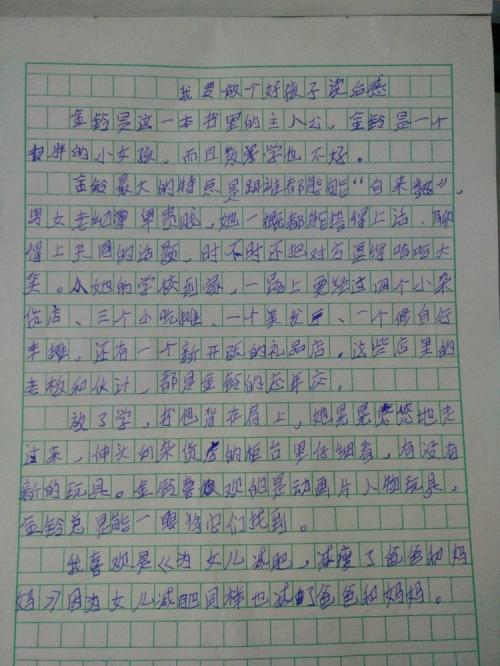 我要做个好孩子读后感
金铃是这一本书里的主人公，金铃是一个
胖的小女孩，而且数学学也不好。
金铃最大的特点是跟谁都能能“自来熟”，
男女老幼尊卑贵贱，她一概都能搭得上话、聊
得上共同的话题，时不时还把对方逗得哈哈大
笑。从她的学校到家，一路上要经过四个小杂
货店、三个小吃摊、一个美发厅、一个修自行
车摊，还有一个新开张的礼品店。这些店里的
老板和伙计，都是金铃的忘年交。
放了学，书包背在肩上，她晃晃悠悠地走
过来，伸头向杂货店的柜台里仔细看，有没有
新的玩具。金铃喜欢的是动画片人物玩具，
金铃总是能一眼将它们找到。
我喜欢是《为女儿减肥，减瘦了爸爸和妈
妈》因为女儿减肥同样也减了爸爸和妈妈。